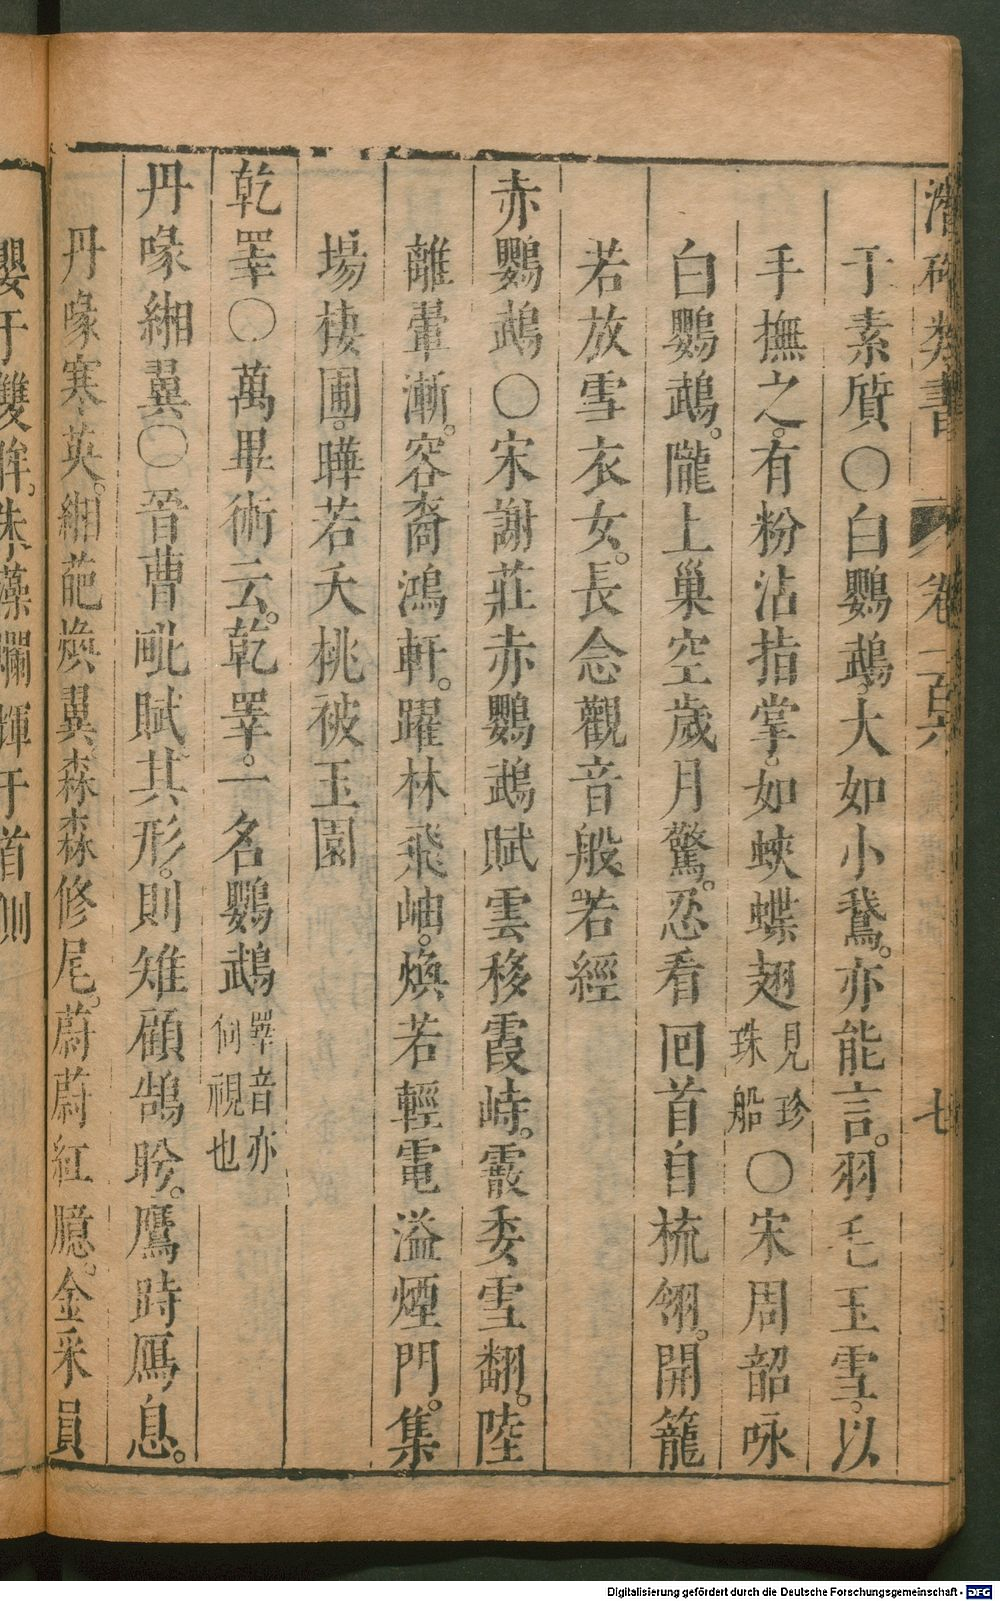 潛確類書 卷一百六 七
于素質〇白鸚鵡大如小鵞。亦能言。羽毛玉雪。以
手撫之。有粉沾指掌。如蛺蝶翅見珍珠船〇宋周韶咏
白鸚鵡。隴上巢空歲月驚。忍看囘首自梳翎。開籠
若放雪衣女。長念觀音般若經
赤鸚鵡〇宋謝莊赤鸚鵡賦雲移霞峙。霰委雪翻。陸
離翬漸。容裔鴻軒。躍林飛岫。煥若輕電溢煙門。集
塲棲圃。曄若夭桃被玉園
乾睪〇萬畢術云。乾睪。一名鸚鵡睪音亦伺視也
丹喙緗翼〇晉曹毗賦其形。則雉顧鵠盻。鷹跱鴈息。
丹喙寒英。緗葩煥翼。森森修尾。蔚蔚紅臆。金采員
于雙眸。朱藻爛輝于首側
Digitalisierung gefördert durch die Deutsche Forschungsgemeinschaft - DFG